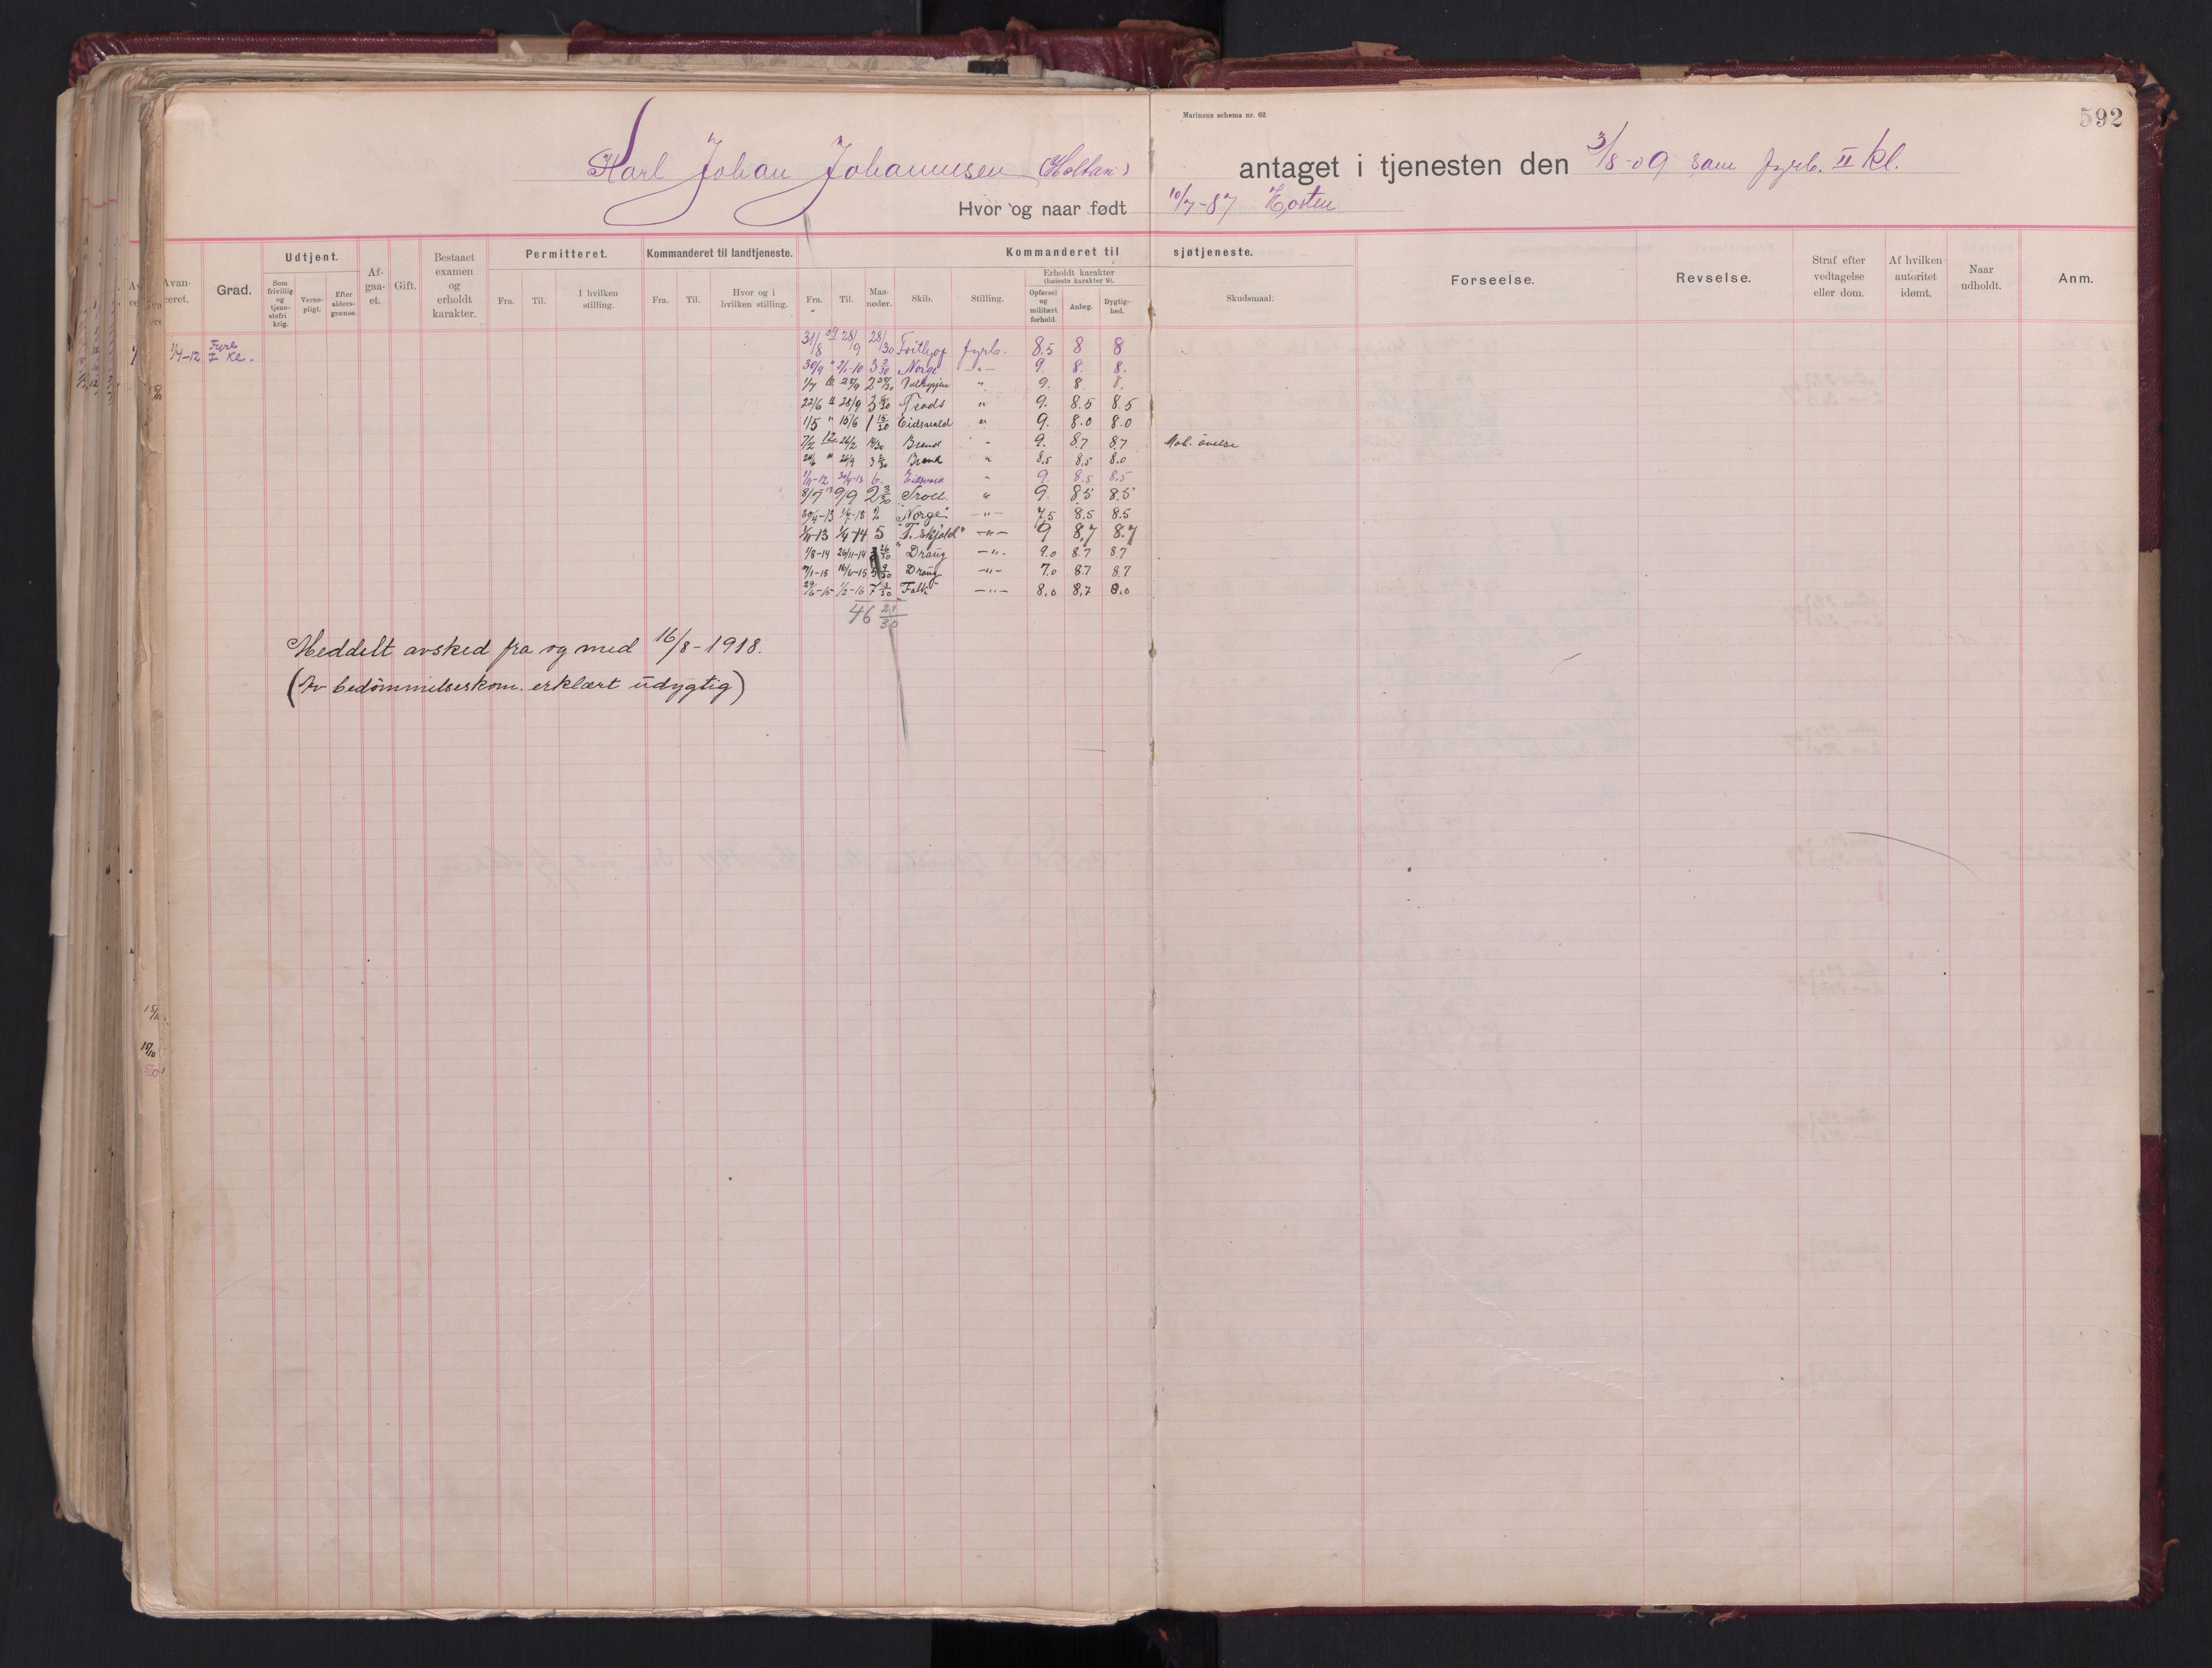 Marinens schema nr. 62.
592
Karl Johan Johannesen (Holtan) antaget i tjenesten den 3/8-09 som fyrb. II kl.
Hvor og naar født 10/7-87 Horten
Avanceret. Grad. Udtjent. Afgaaet. Gift. Bestaaet examen og erholdt karakter. Permitteret. Kommanderet til landtjeneste. Kommanderet til sjøtjeneste. Forseelse. Revselse. Straf efter vedtagelse eller dom. Af hvilken autoritet idømt. Naar udholdt. Anm.
Som frivillig og tjenestefri krig. Vernepligt. Efter aldersgrænse. Fra. Til. I hvilken stilling. Fra. Til. Hvor og i hvilken stilling. Fra. Til. Maaneder. Skib. Stilling. Erholdt karakter (høieste karakter 9). Skudsmaal.
Opførsel og militært forhold. Anlæg. Dygtighed.
1/4-12 Fyrb I Kl. 31/8 09 28/9 28/30 Frithjof fyrb. 8.5 8 8
30/9 " 2/1-10 3 3/30 Norge -"- 9 8. 8.
1/7 25/9 2 25/30 Valkyrjen " 9. 8 8.
22/6 11 28/9 3 Trods " 9. 8.5 8.5
1/5 " 15/6 1 15/30 Eidsvold " 9. 8.0 8.0
7/2 12 26/2 Brand " 9. 8.7 8.7 Mob. øvelse
" 26/9 3 Brand " 8.5 8.5 8.0
1/11-12 30/4-13 6. Eidsvold " 9. 8.5 8.5
8/7 13 9/9 2 3/30 Troll. " 9. 8.5 8.5
30/4-13 1/7-13 2 "Norge" -"- 7.5 8.5 8.5
1/11-13 1/4-14 5 "T. Skjold" -"- 9 8,7 8.7
1/8-14 26/11-14 3 26/30 "Draug -"- 9.0 8.7 8.7
7/1-15 16/6-15 5 9/30 Draug -"- 7.0 8.7 8.7
29/6-15 1/2-16 7 3/30 Falk" -"- 8.0 8,7 8.0
46 21/30
Meddelt avsked fra og med 16/8-1918.
(Av bedømmelseskom. erklært udygtig)